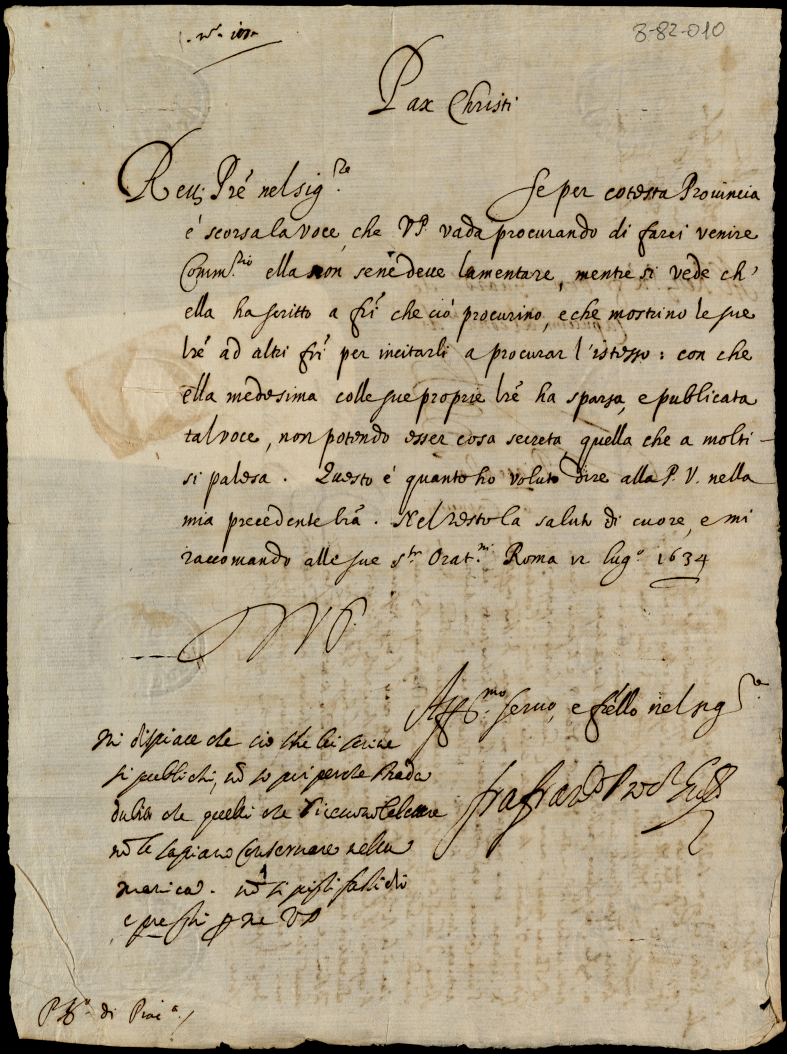 8-82-010
Pax Christi
Reu: Prē nel sig.re Se per cotesta Prouincia
é scorsa la voce, che VP. vada procurando di farci venire
Comm.rio ella non sene deue lamentare, mentre si vede ch'
ella ha scritto a frī che ciò procurino, e che mostrino le sue
lrē ad altri frī per incitarli a procurar l'istesso: con che
ella medesima colle sue proprie lrē ha sparsa, e publicata
tal voce, non potendo esser cosa secreta quella che a molti
si palesa. Questo é quanto ho voluto dire alla P. V. nella
mia precedente lrā. Nel resto la saluto di cuore, e mi
raccomando alle sue s.te Orat.ni Roma 12 lug.o 1634
VP.
Aff.mo seruo, e frēllo nel sig.re
Mi dispiace che ciò che lei scriue
si publichi, nō so poi perche
dubito che quelli che riceuono le lettere
nō le sapiano Conseruare nella
manica. nō si pigli fastidio
e preghi p me VP
di